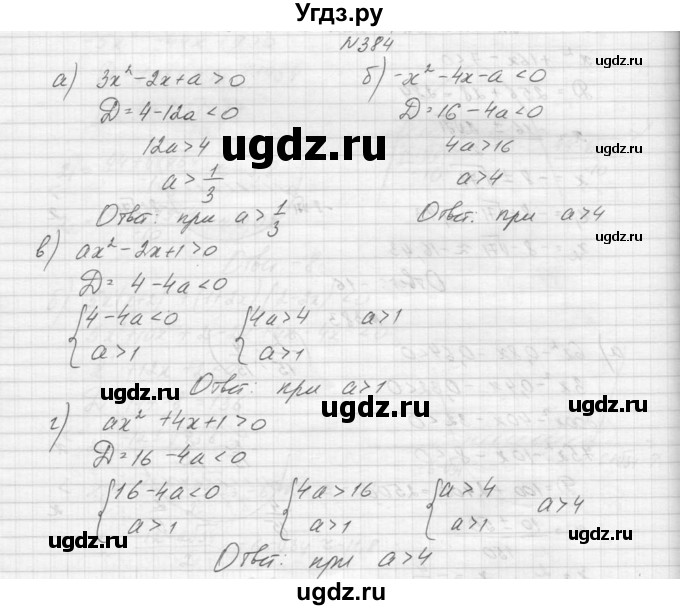 Угдз.ру
N384
а) 3x² - 2x + a > 0
D = 4 - 12a < 0
12a > 4
a > 1/3
Ответ: при a > 1/3
б) -x² - 4x - a < 0
D = 16 - 4a < 0
4a > 16
a > 4
Ответ: при a > 4
в) ax² - 2x + 1 > 0
D = 4 - 4a < 0
{ 4 - 4a < 0 { 4a > 4 a > 1
a > 1 a > 1
Ответ: при a > 1
г) ax² + 4x + 1 > 0
D = 16 - 4a < 0
{ 16 - 4a < 0 { 4a > 16 { a > 4 a > 4
a > 1 a > 1 a > 1
Ответ: при a > 4
ugdz.ru
ugdz.ru
ugdz.ru
ugdz.ru
ugdz.ru
ugdz.ru
ugdz.ru
ugdz.ru
ugdz.ru
ugdz.ru